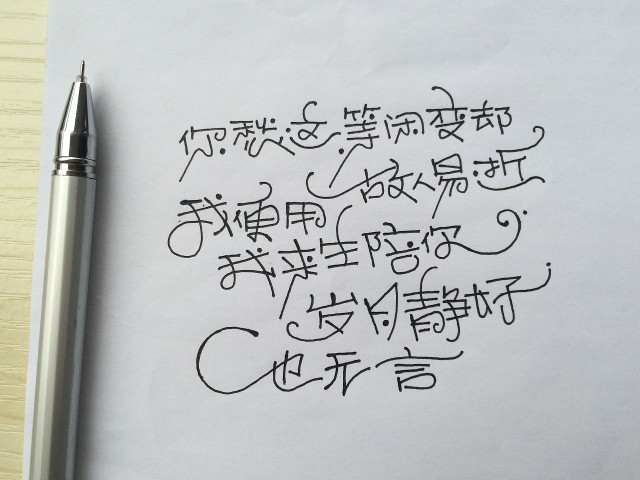 你愁这等闲变却
故人易折
我便用
我来生陪你
岁月静好
也无言